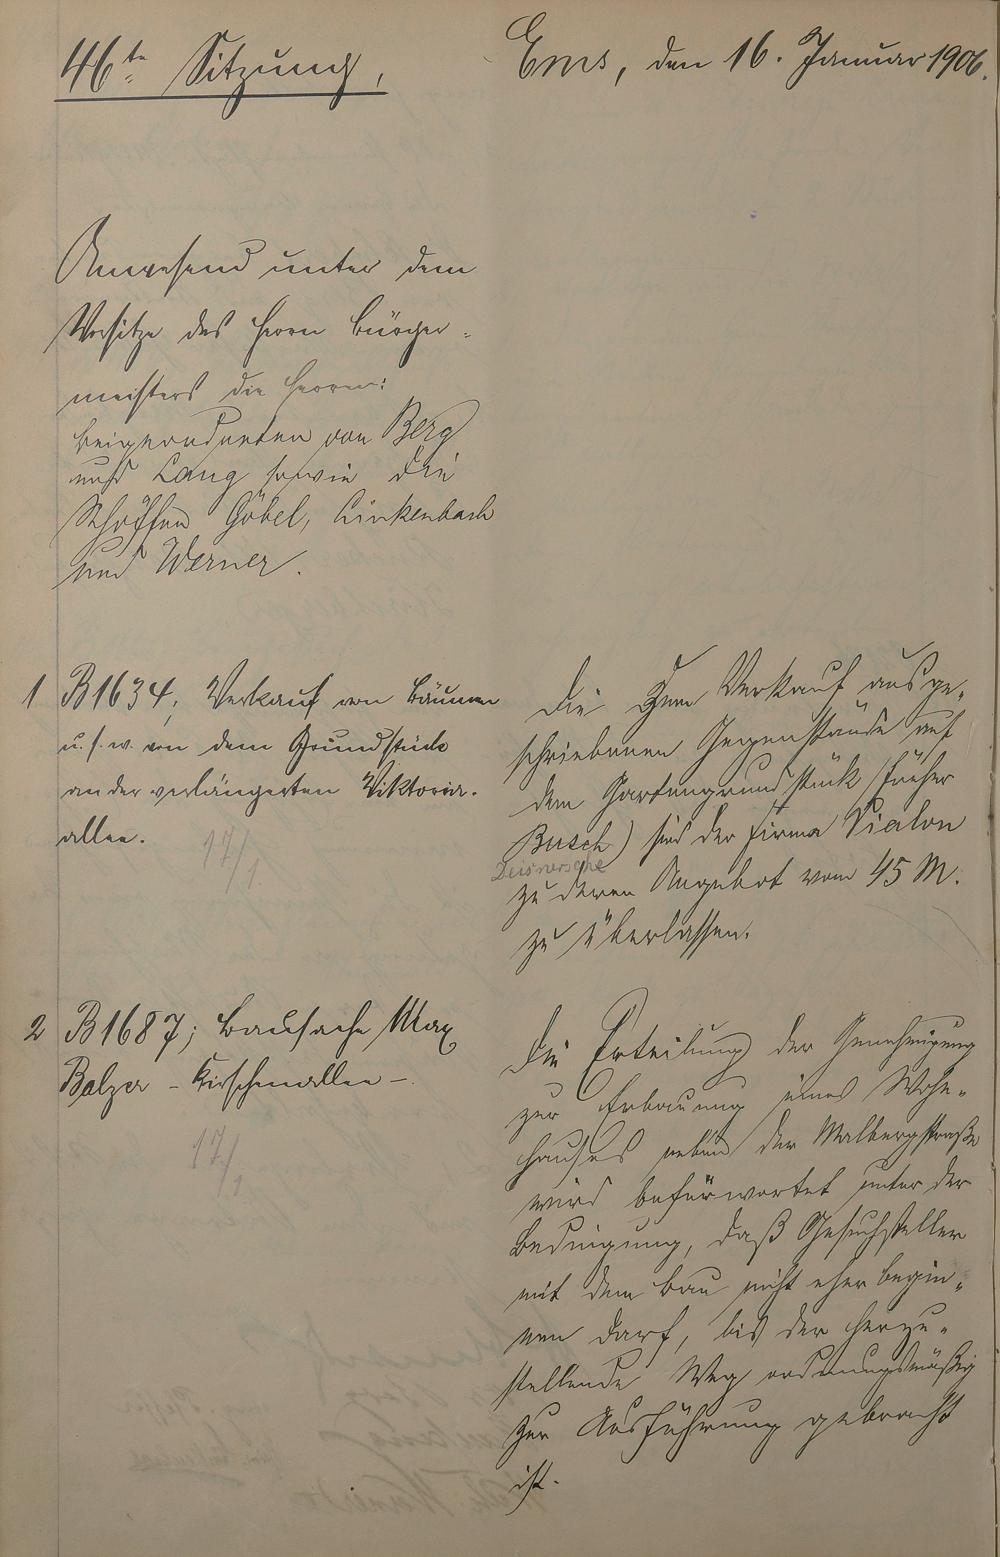 46te Sitzung.
Ems, den 16. Januar 1906.
Anwesend unter dem
Vorsitze des Herrn Bürger-
meisters die Herren:
Beigeordneten von Berg
und Lang sowie die
Schöffen Göbel, Linkenbach
und Werner.
1 B1634; Verkauf von Bäumen
u.s.w. von dem Grundstück
an der verlängerten Viktoria-
allee.
17/1.
Die zum Verkauf ausge-
schriebenen Gegenstände auf
dem Gartengrundstück (früher
Busch) sind der Firma Vialon
Deisnersche
zu deren Angebot vom 45 M.
zu überlassen.
2 B1687; Bausache Max
Balzer - Kirschenallee -.
17/1
Die Erteilung der Genehmigung
zur Erbauung eines Wohn-
hauses neben der Malbergstraße
wird befürwortet unter der
Bedingung, daß Gesuchsteller
mit dem Bau nicht eher begin-
nen darf, bis der herzu-
stellende Weg ordnungsmäßig
zur Ausführung gebracht
ist.